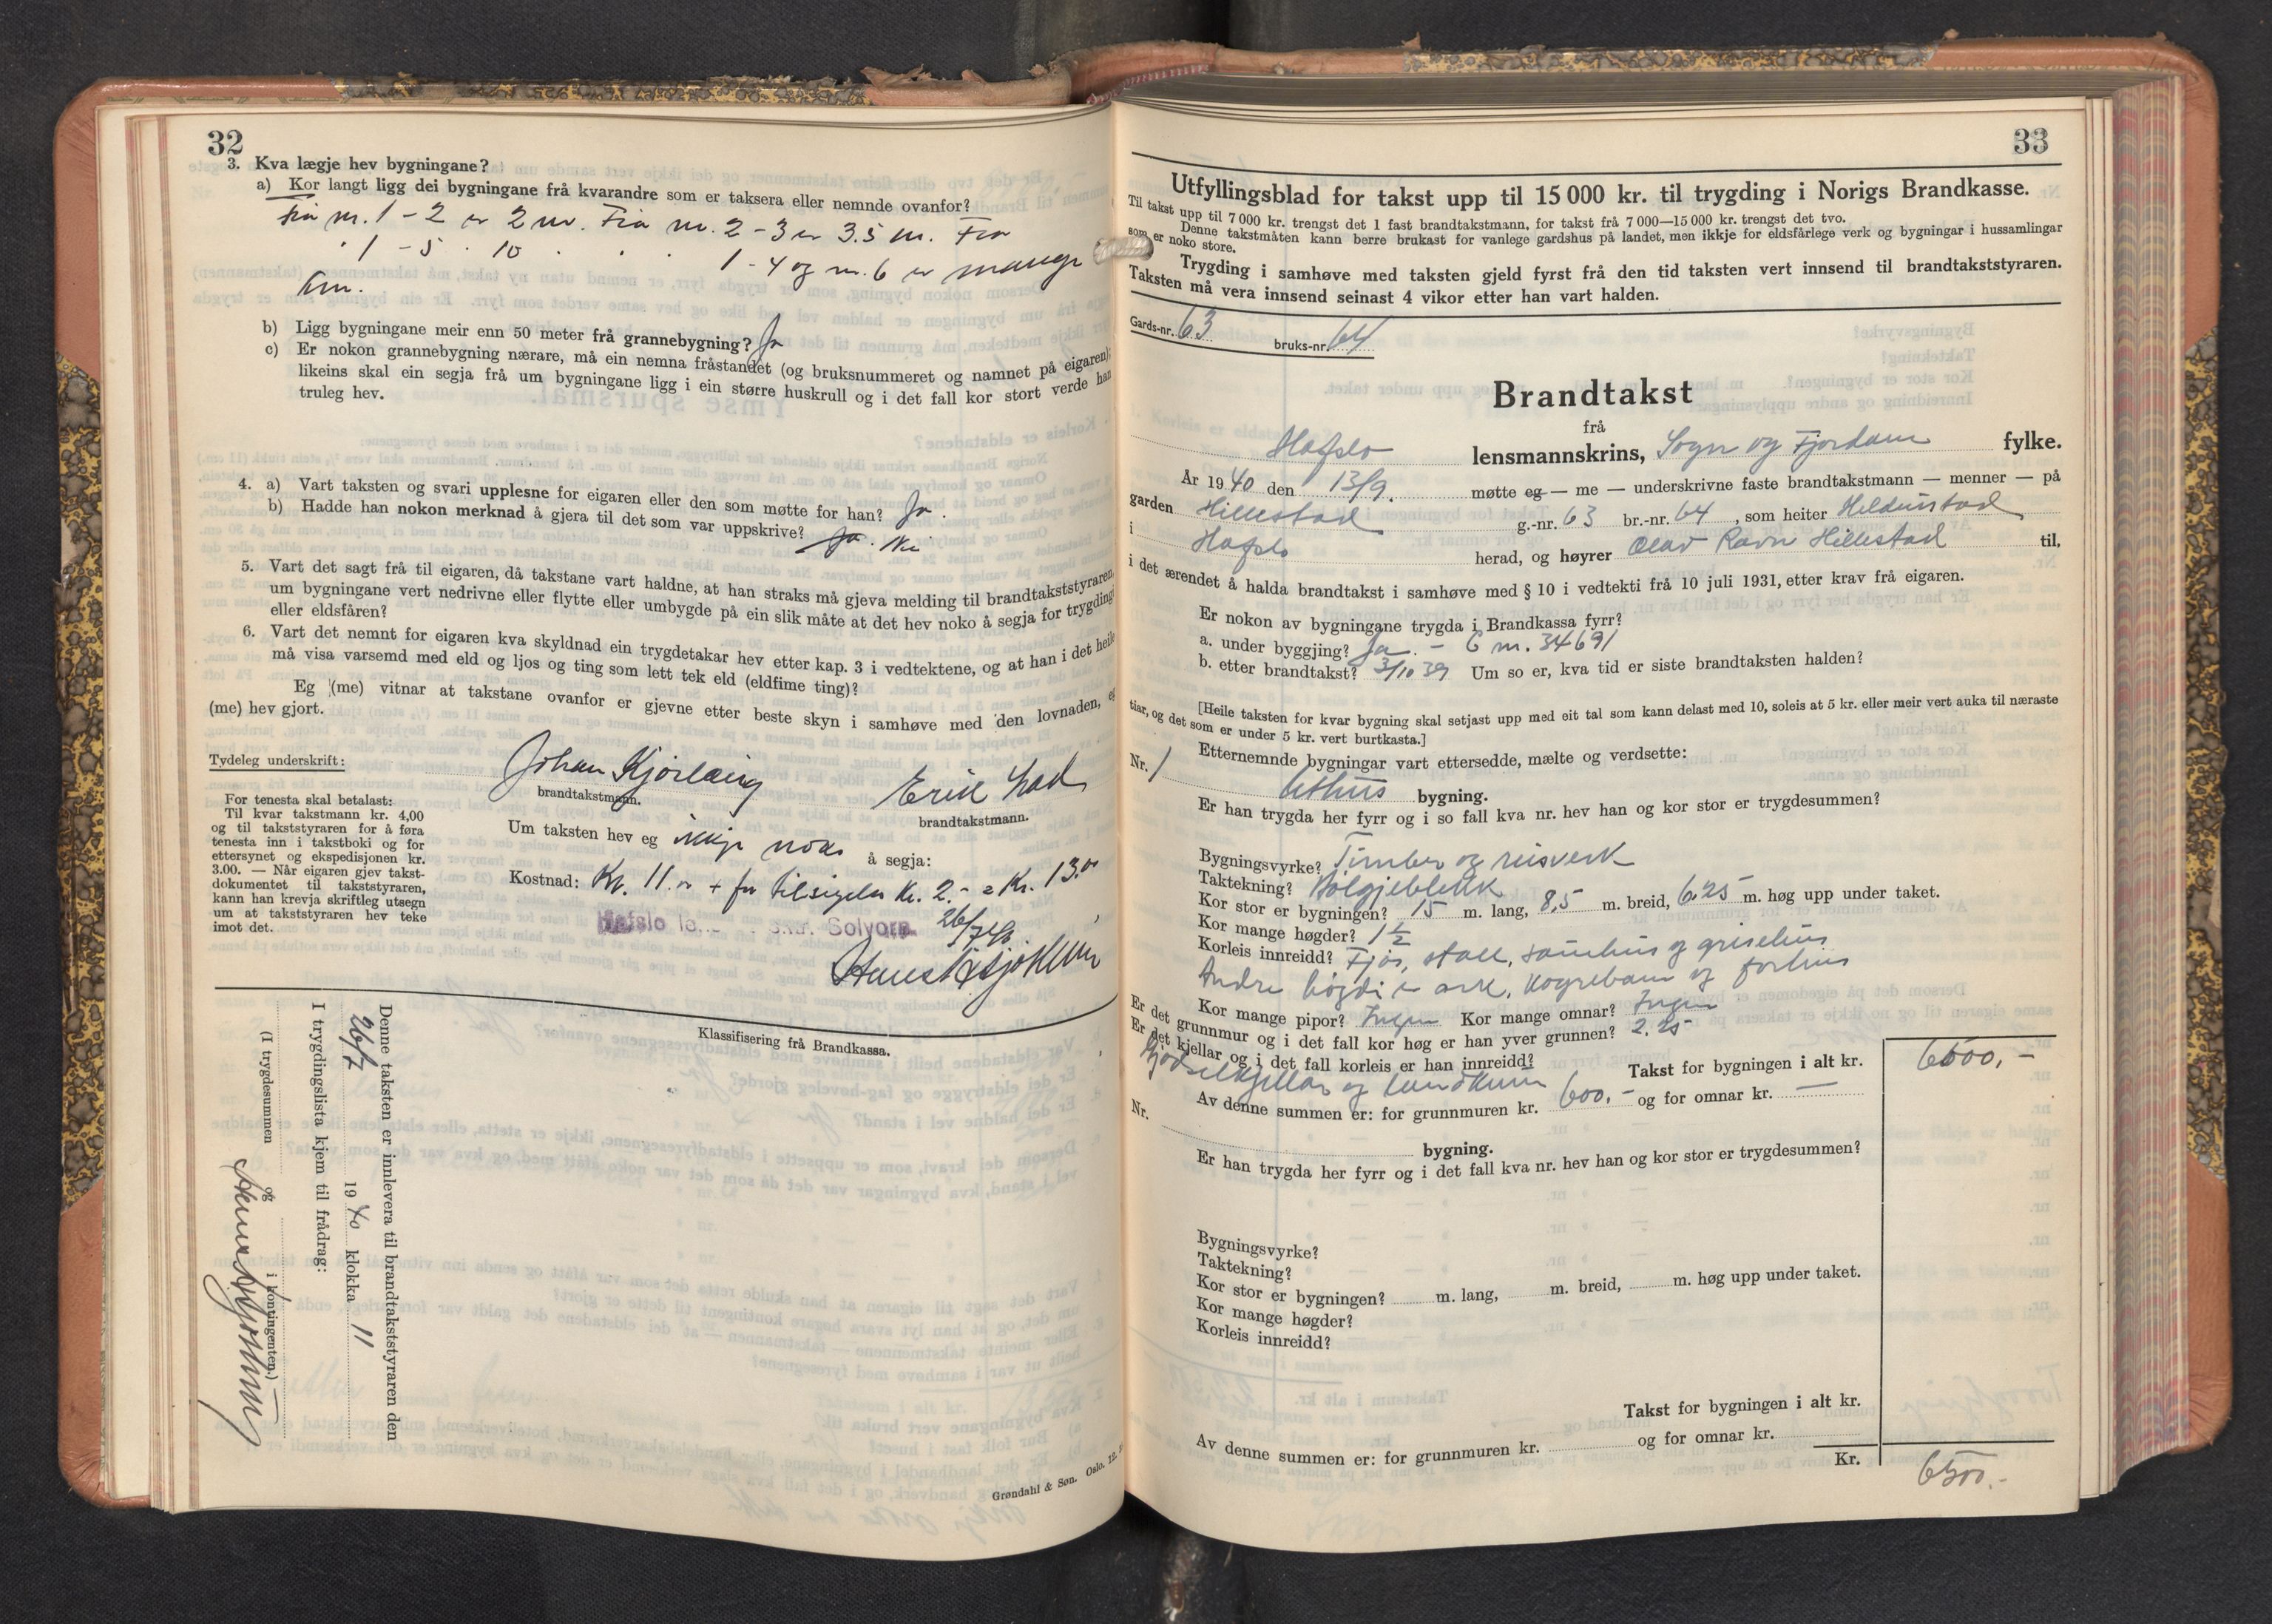 32
3. Kva lægje hev bygningane?
a) Kor langt ligg dei bygningane frå kvarandre som er taksera eller nemnde ovanfor?
Frå nr. 1 - 2 er 2 m. Frå nr. 2 - 3 er 3.5 m. Frå
" 1 - 5 " 10 " " " 1 - 4 og nr. 6 er mange
km.
b) Ligg bygningane meir enn 50 meter frå grannebygning? Ja
c) Er nokon grannebygning nærare, må ein nemna fråstandet (og bruksnummeret og namnet på eigaren);
likeins skal ein segja frå um bygningane ligg i ein større huskrull og i det fall kor stort verde han
truleg hev.
4. a) Vart taksten og svari upplesne for eigaren eller den som møtte for han? Ja.
b) Hadde han nokon merknad å gjera til det som var uppskrive? Ja. Nei
5. Vart det sagt frå til eigaren, då takstane vart haldne, at han straks må gjeva melding til brandtakststyraren,
um bygningane vert nedrivne eller flytte eller umbygde på ein slik måte at det hev noko å segja for trygdingi
eller eldsfåren?
6. Vart det nemnt for eigaren kva skyldnad ein trygdetakar hev etter kap. 3 i vedtektene, og at han i det heile
må visa varsemd med eld og ljos og ting som lett tek eld (eldfime ting)?
Eg (me) vitnar at takstane ovanfor er gjevne etter beste skyn i samhøve med den lovnaden, eg
(me) hev gjort.
Tydeleg underskrift:
Johan Kjørlaug Erik Lad
brandtakstmann. brandtakstmann.
For tenesta skal betalast:
Til kvar takstmann kr. 4,00
og til takststyraren for å føra
tenesta inn i takstboki og for
ettersynet og ekspedisjonen kr.
3.00. — Når eigaren gjev takst-
dokumentet til takststyraren,
kann han krevja skriftleg utsegn
um at takststyraren hev teke
imot det.
Um taksten hev eg ikkje noko å segja:
Kostnad: Kr. 11.00 + for tilsigelse Kr. 2.- = Kr. 13.00
Hafslo Solvorn 26/7 40
Klassifisering frå Brandkassa.
Denne taksten er innlevera til brandtakststyraren den
26/7 19 40 klokka 11
I trygdingslista kjem til frådrag:
(I trygdesummen og i kontingenten.)
Grøndahl & Søn. Oslo. 12.
33
Utfyllingsblad for takst upp til 15 000 kr. til trygding i Norigs Brandkasse.
Til takst upp til 7 000 kr. trengst det 1 fast brandtakstmann, for takst frå 7 000—15 000 kr. trengst det tvo.
Denne takstmåten kann berre brukast for vanlege gardshus på landet, men ikkje for eldsfårlege verk og bygningar i hussamlingar
som er noko store.
Trygding i samhøve med taksten gjeld fyrst frå den tid taksten vert innsend til brandtakststyraren.
Taksten må vera innsend seinast 4 vikor etter han vart halden.
Gards-nr. 63 bruks-nr. 64
Brandtakst
frå
Hafslo lensmannskrins, Sogn og Fjordane fylke.
År 19 40 den 13/9. møtte eg — me — underskrivne faste brandtakstmann — menner — på
garden Hillestad g.-nr. 63 br.-nr. 64, som heiter Heldurstad
i Hafslo herad, og høyrer Olav Ravn Hillestad til,
i det ærendet å halda brandtakst i samhøve med § 10 i vedtekti frå 10 juli 1931, etter krav frå eigaren.
Er nokon av bygningane trygda i Brandkassa fyrr?
a. under byggjing? Ja. - G nr. 34691
b. etter brandtakst? 3/10 39 Um so er, kva tid er siste brandtaksten halden?
[Heile taksten for kvar bygning skal setjast upp med eit tal som kann delast med 10, soleis at 5 kr. eller meir vert auka til næraste
tiar, og det som er under 5 kr. vert burtkasta.]
Etternemnde bygningar vart ettersedde, mælte og verdsette:
Nr. 1 Uthus bygning.
Er han trygda her fyrr og i so fall kva nr. hev han og kor stor er trygdesummen?
Bygningsvyrke? Timber og reisverk
Taktekning? Bølgjeblekk
Kor stor er bygningen? 15 m. lang, 8,5 m. breid, 6.25 m. høg upp under taket.
Kor mange høgder? 1 1/2
Korleis innreidd? Fjøs, stall, sauehus og grisehus
Andre høgdi er ark, køyrebana og forhus
Kor mange pipor? Ingen Kor mange omnar? Ingen
Er det grunnmur og i det fall kor høg er han yver grunnen? 2.25
Er det kjellar og i det fall korleis er han innreidd?
Gjødselkjellar og landkum
Takst for bygningen i alt kr. 6500,-
Av denne summen er: for grunnmuren kr. 600.- og for omnar kr. —
Nr. bygning.
Er han trygda her fyrr og i det fall kva nr. hev han og kor stor er trygdesummen?
Bygningsvyrke?
Taktekning?
Kor stor er bygningen? m. lang, m. breid, m. høg upp under taket.
Kor mange høgder?
Korleis innreidd?
Takst for bygningen i alt kr.
Av denne summen er: for grunnmuren kr. og for omnar kr.
Kr. 6500.-